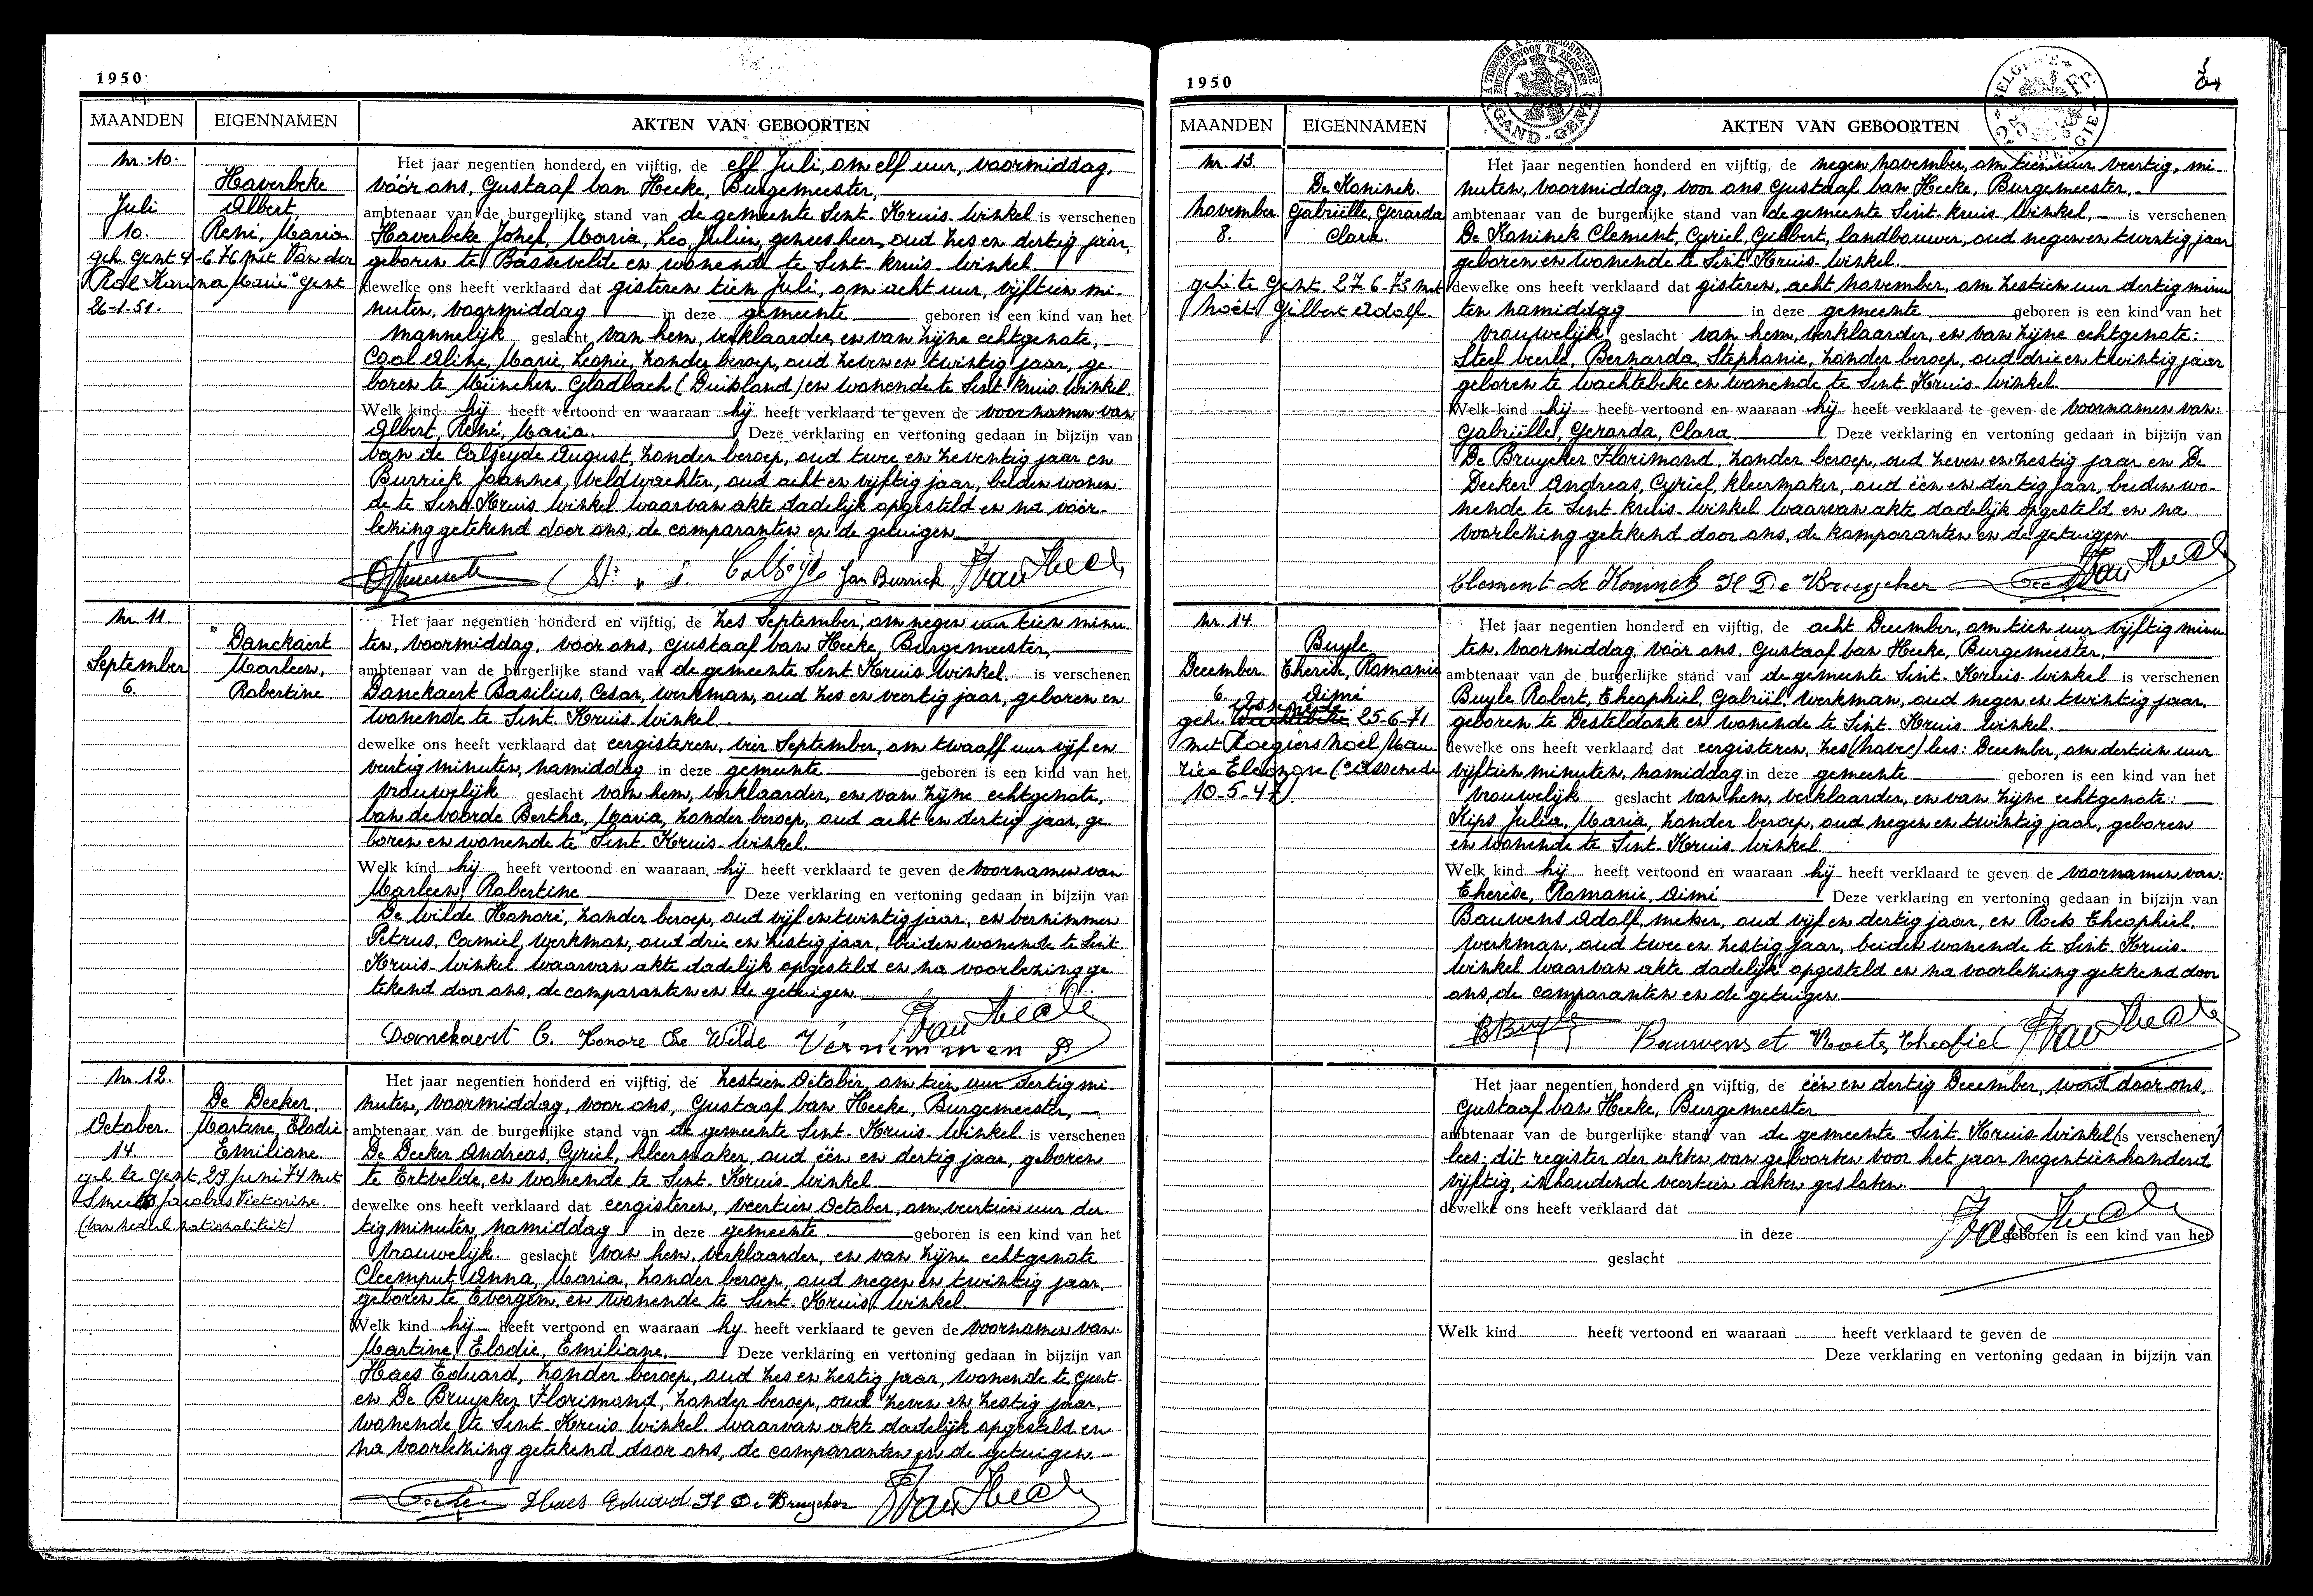 1950
MAANDEN EIGENNAMEN AKTEN VAN GEBOORTEN
Nr. 10.
Haverbeke
Juli Albert,
10. René, Maria
geh. Gent 4-6-76 met Van der
Karina Marie ° Gent
26-1-51.
Het jaar negentien honderd en vijftig, de elf Juli, om elf uur, voormiddag,
vóór ons, Gustaaf Van Hecke, Burgemeester,
ambtenaar van de burgerlijke stand van de gemeente Sint-Kruis-Winkel is verschenen
Haverbeke Jozef, Maria, Leo, Julien, geneesheer, oud zes en dertig jaar,
geboren te Bassevelde en wonende te Sint-Kruis-Winkel
dewelke ons heeft verklaard dat gisteren tien Juli, om acht uur, vijftien mi-
nuten, voormiddag in deze gemeente geboren is een kind van het
mannelijk geslacht van hem, verklaarder, en van zijne echtgenote,
Cool Aline, Marie, Leonie, zonder beroep, oud zeven en twintig jaar, ge-
boren te München-Gladbach (Duitsland) en wonende te Sint-Kruis-Winkel.
Welk kind hij heeft vertoond en waaraan hij heeft verklaard te geven de voornamen van
Albert, René, Maria. Deze verklaring en vertoning gedaan in bijzijn van
Van de Calseyde August, zonder beroep, oud twee en zeventig jaar en
Burrick Joannes, veldwachter, oud acht en vijftig jaar, beiden wonen-
de te Sint-Kruis-Winkel waarvan akte dadelijk opgesteld en na voor-
lezing getekend door ons, de comparanten en de getuigen
Jan Burrick GVan Hecke
Nr. 11.
Danckaert
September Marleen,
6. Robertine
Het jaar negentien honderd en vijftig, de zes September, om negen uur tien minu-
ten, voormiddag, voor ons, Gustaaf Van Hecke, Burgemeester,
ambtenaar van de burgerlijke stand van de gemeente Sint-Kruis-Winkel is verschenen
Danckaert Basilius, Cesar, werkman, oud zes en veertig jaar, geboren en
wonende te Sint-Kruis-Winkel
dewelke ons heeft verklaard dat eergisteren, vier September, om twaalf uur vijf en
veertig minuten, namiddag in deze gemeente geboren is een kind van het
vrouwelijk geslacht van hem, verklaarder, en van zijne echtgenote,
Van de Voorde Bertha, Maria, zonder beroep, oud acht en dertig jaar, ge-
boren en wonende te Sint-Kruis-Winkel.
Welk kind hij heeft vertoond en waaraan hij heeft verklaard te geven de voornamen van
Marleen, Robertine Deze verklaring en vertoning gedaan in bijzijn van
De Wilde Honoré, zonder beroep, oud vijf en twintig jaar, en Vernimmen
Petrus, Camiel, werkman, oud drie en zestig jaar, beiden wonende te Sint-
Kruis-Winkel waarvan akte dadelijk opgesteld en na voorlezing ge-
tekend door ons, de comparanten en de getuigen.
Danckaert C. Honore De Wilde Vernemmen P GVan Hecke
Nr. 12.
De Decker,
October. Martine, Elodie
14. Emiliane
geh. te Gent 29 juni 74 met
Smeets Jacobus Victorine.
(van nederl nationaliteit)
Het jaar negentien honderd en vijftig, de zestien October, om tien uur dertig mi-
nuten, voormiddag, voor ons, Gustaaf Van Hecke, Burgemeester,
ambtenaar van de burgerlijke stand van de gemeente Sint-Kruis-Winkel is verschenen
De Decker Andreas, Cyriel, kleermaker, oud één en dertig jaar, geboren
te Ertvelde, en wonende te Sint-Kruis-Winkel.
dewelke ons heeft verklaard dat eergisteren, veertien October, om veertien uur der-
tig minuten, namiddag in deze gemeente geboren is een kind van het
vrouwelijk geslacht van hem, verklaarder, en van zijne echtgenote
Cleemput Anna, Maria, zonder beroep, oud negen en twintig jaar,
geboren te Evergem, en wonende te Sint-Kruis-Winkel.
Welk kind hij heeft vertoond en waaraan hy heeft verklaard te geven de voornamen van
Martine, Elodie, Emiliane. Deze verklaring en vertoning gedaan in bijzijn van
Haes Eduard, zonder beroep, oud zes en zestig jaar, wonende te Gent
en De Bruycker Florimond, zonder beroep, oud zeven en zestig jaar,
wonende te Sint-Kruis-Winkel waarvan akte dadelijk opgesteld en
na voorlezing getekend door ons, de comparanten en de getuigen.
Decker Haes Eduard Fl De Bruycker GVan Hecke
1950
MAANDEN EIGENNAMEN AKTEN VAN GEBOORTEN
Nr. 13.
De Koninck.
November Gabriëlle, Gerarda
8. Clara.
geh. te Gent. 27-6-73 met
Noët Gilbert Adolf.
Het jaar negentien honderd en vijftig, de negen November, om tien uur veertig, mi-
nuten, voormiddag, voor ons Gustaaf Van Hecke, Burgemeester,
ambtenaar van de burgerlijke stand van de gemeente Sint-Kruis-Winkel, is verschenen
De Koninck Clement, Cyriel, Gilbert, landbouwer, oud negen en twintig jaar
geboren en wonende te Sint-Kruis-Winkel.
dewelke ons heeft verklaard dat gisteren, acht November, om zestien uur dertig minu
ten namiddag in deze gemeente geboren is een kind van het
vrouwelijk geslacht van hem, verklaarder, en van zijne echtgenote:
Steel Veerle, Bernarda, Stephanie, zonder beroep, oud drie en twintig jaar
geboren te Wachtebeke en wonende te Sint-Kruis-Winkel
Welk kind hij heeft vertoond en waaraan hij heeft verklaard te geven de voornamen van:
Gabriëlle, Gerarda, Clara. Deze verklaring en vertoning gedaan in bijzijn van
De Bruycker Florimond, zonder beroep, oud zeven en zestig jaar en De
Decker Andreas, Cyriel, kleermaker, oud één en dertig jaar, beiden wo-
nende te Sint-Kruis-Winkel waarvan akte dadelijk opgesteld en na
voorlezing getekend door ons, de komparanten en de getuigen
Clement De Koninck Fl De Bruycker Decker GVan Hecke
Nr. 14.
Buyle
December Therese, Romanie
6. Aimé
Assenede
geh. Wachtebeke 25-6-71
met Roegiers Noel Mau-
rice Eleonore (° Assenede
10-5-47)
Het jaar negentien honderd en vijftig, de acht December, om tien uur vijftig minu
ten, voormiddag, vóór ons, Gustaaf Van Hecke, Burgemeester,
ambtenaar van de burgerlijke stand van de gemeente Sint-Kruis-Winkel is verschenen
Buyle Robert, Theophiel, Gabriël, werkman, oud negen en twintig jaar,
geboren te Desteldonk en wonende te Sint-Kruis-Winkel.
dewelke ons heeft verklaard dat eergisteren, zes (Novec) lees: December, om dertien uur
vijftien minuten, namiddag in deze gemeente geboren is een kind van het
vrouwelijk geslacht van hem, verklaarder, en van zijne echtgenote:
Kips Julia, Maria, zonder beroep, oud negen en twintig jaar, geboren
en wonende te Sint-Kruis-Winkel
Welk kind hij heeft vertoond en waaraan hij heeft verklaard te geven de voornamen van:
Therese, Romanie, Aimé Deze verklaring en vertoning gedaan in bijzijn van
Bauwens Adolf, meker, oud vijf en dertig jaar, en Roets Theophiel,
werkman, oud twee en zestig jaar, beiden wonende te Sint-Kruis-
Winkel waarvan akte dadelijk opgesteld en na voorlezing getekend door
ons, de comparanten en de getuigen
RBuyle Bauwens A Roets Theofiel GVan Hecke
Het jaar negentien honderd en vijftig, de één en dertig December, word door ons,
Gustaaf Van Hecke, Burgemeester
ambtenaar van de burgerlijke stand van de gemeente Sint-Kruis-Winkel (is verschenen)
lees: dit register der akten van geboorten voor het jaar negentienhonderd
vijftig, inhoudende veertien akten gesloten.
dewelke ons heeft verklaard dat
in deze geboren is een kind van het
geslacht
GVan Hecke
Welk kind heeft vertoond en waaraan heeft verklaard te geven de
Deze verklaring en vertoning gedaan in bijzijn van